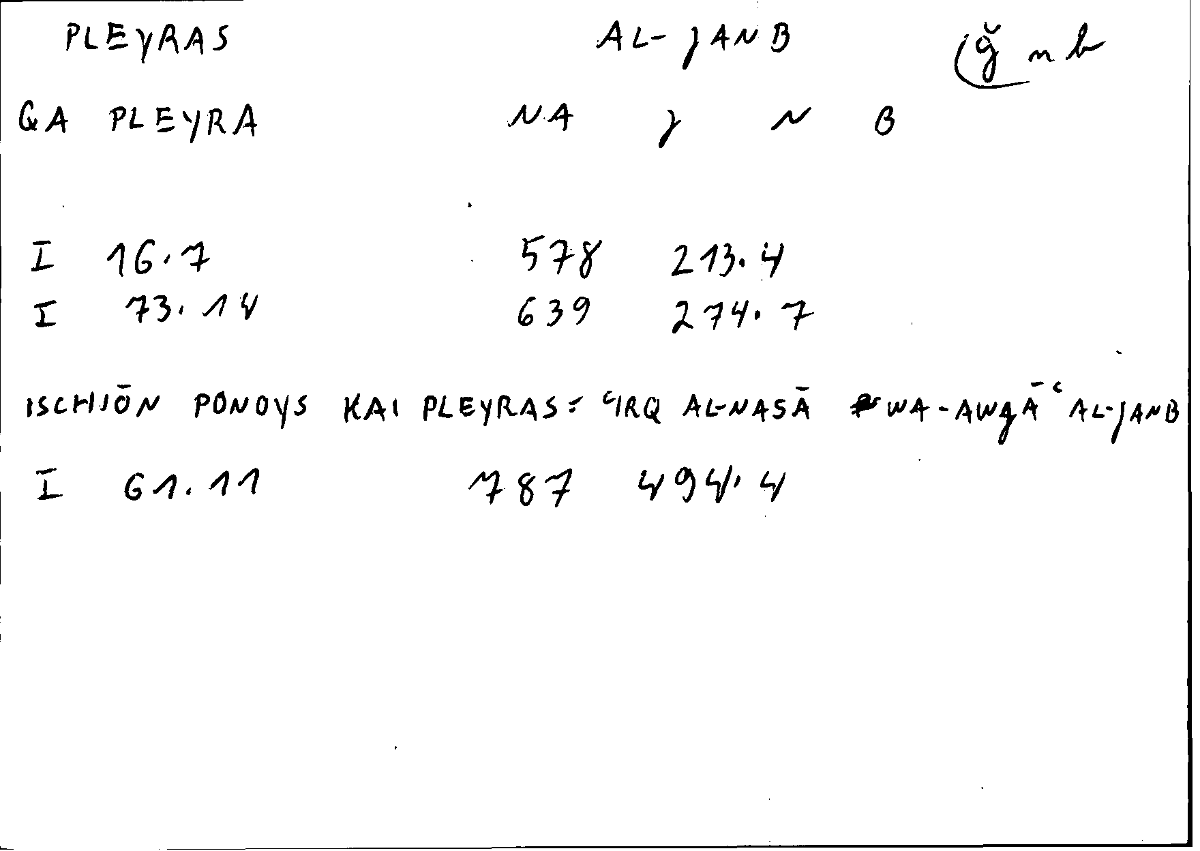 PLEYRAS AL-JANB ǧ n b
GA PLEYRA NA J N B
I 16.7 578 213.4
I 73.14 639 274.7
ISCHIŌN PONOYS KAI PLEYRAS: ʿIRQ AL-NASĀ WA-AWGĀʿ AL-JANB
I 61.11 787 494.4